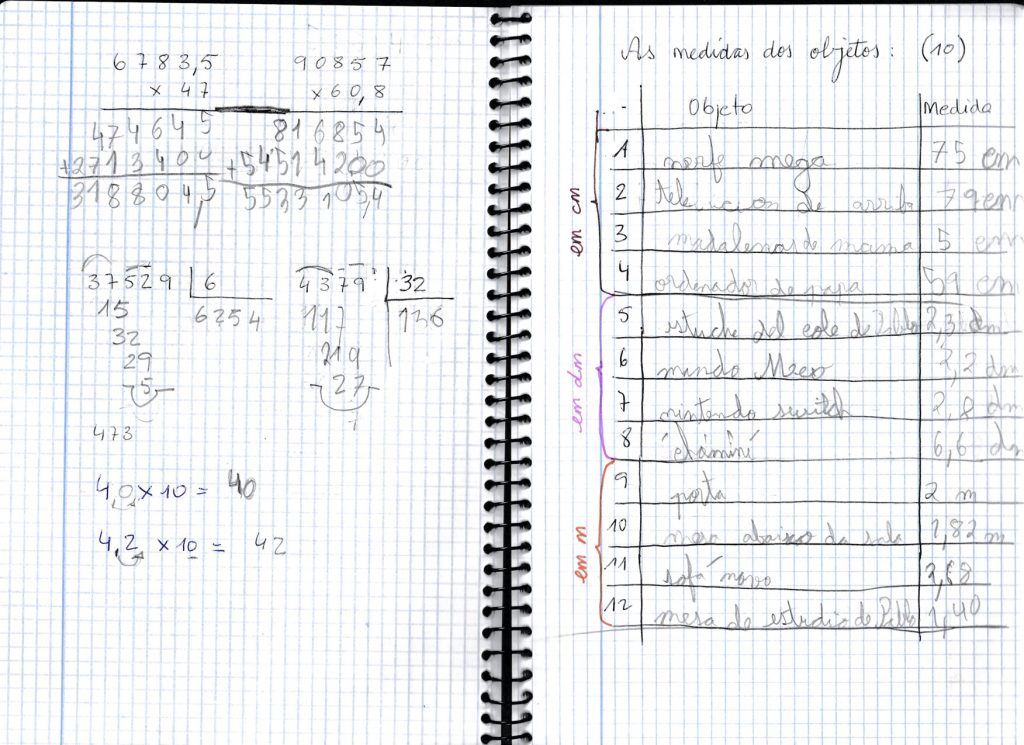 6783,5
× 47
474645
+2713400
318804,5
90857
×60,8
816854
+54514200
5533105,4
37529 6
15 6254
32
29
5
4379 32
117 136
219
27
473
4,0 × 10 = 40
4,2 × 10 = 42
As medidas dos objetos: (10)
Objeto Medida
em cm
1 norfe mega 75 cm
2 de arriba 79 cm
3 madalenas de mama 5 cm
4 ordenador de papa 59 cm
em dm
5 estuche del cole de Pablo 2,3 dm
6 mundo ,2 dm
7 nintendo switch 2,8 dm
8 6,6 dm
em m
9 porta 2 m
10 mesa abaixo da sala 1,82 m
11 sofá novo ,68
12 mesa de estudio de Pablo 1,40